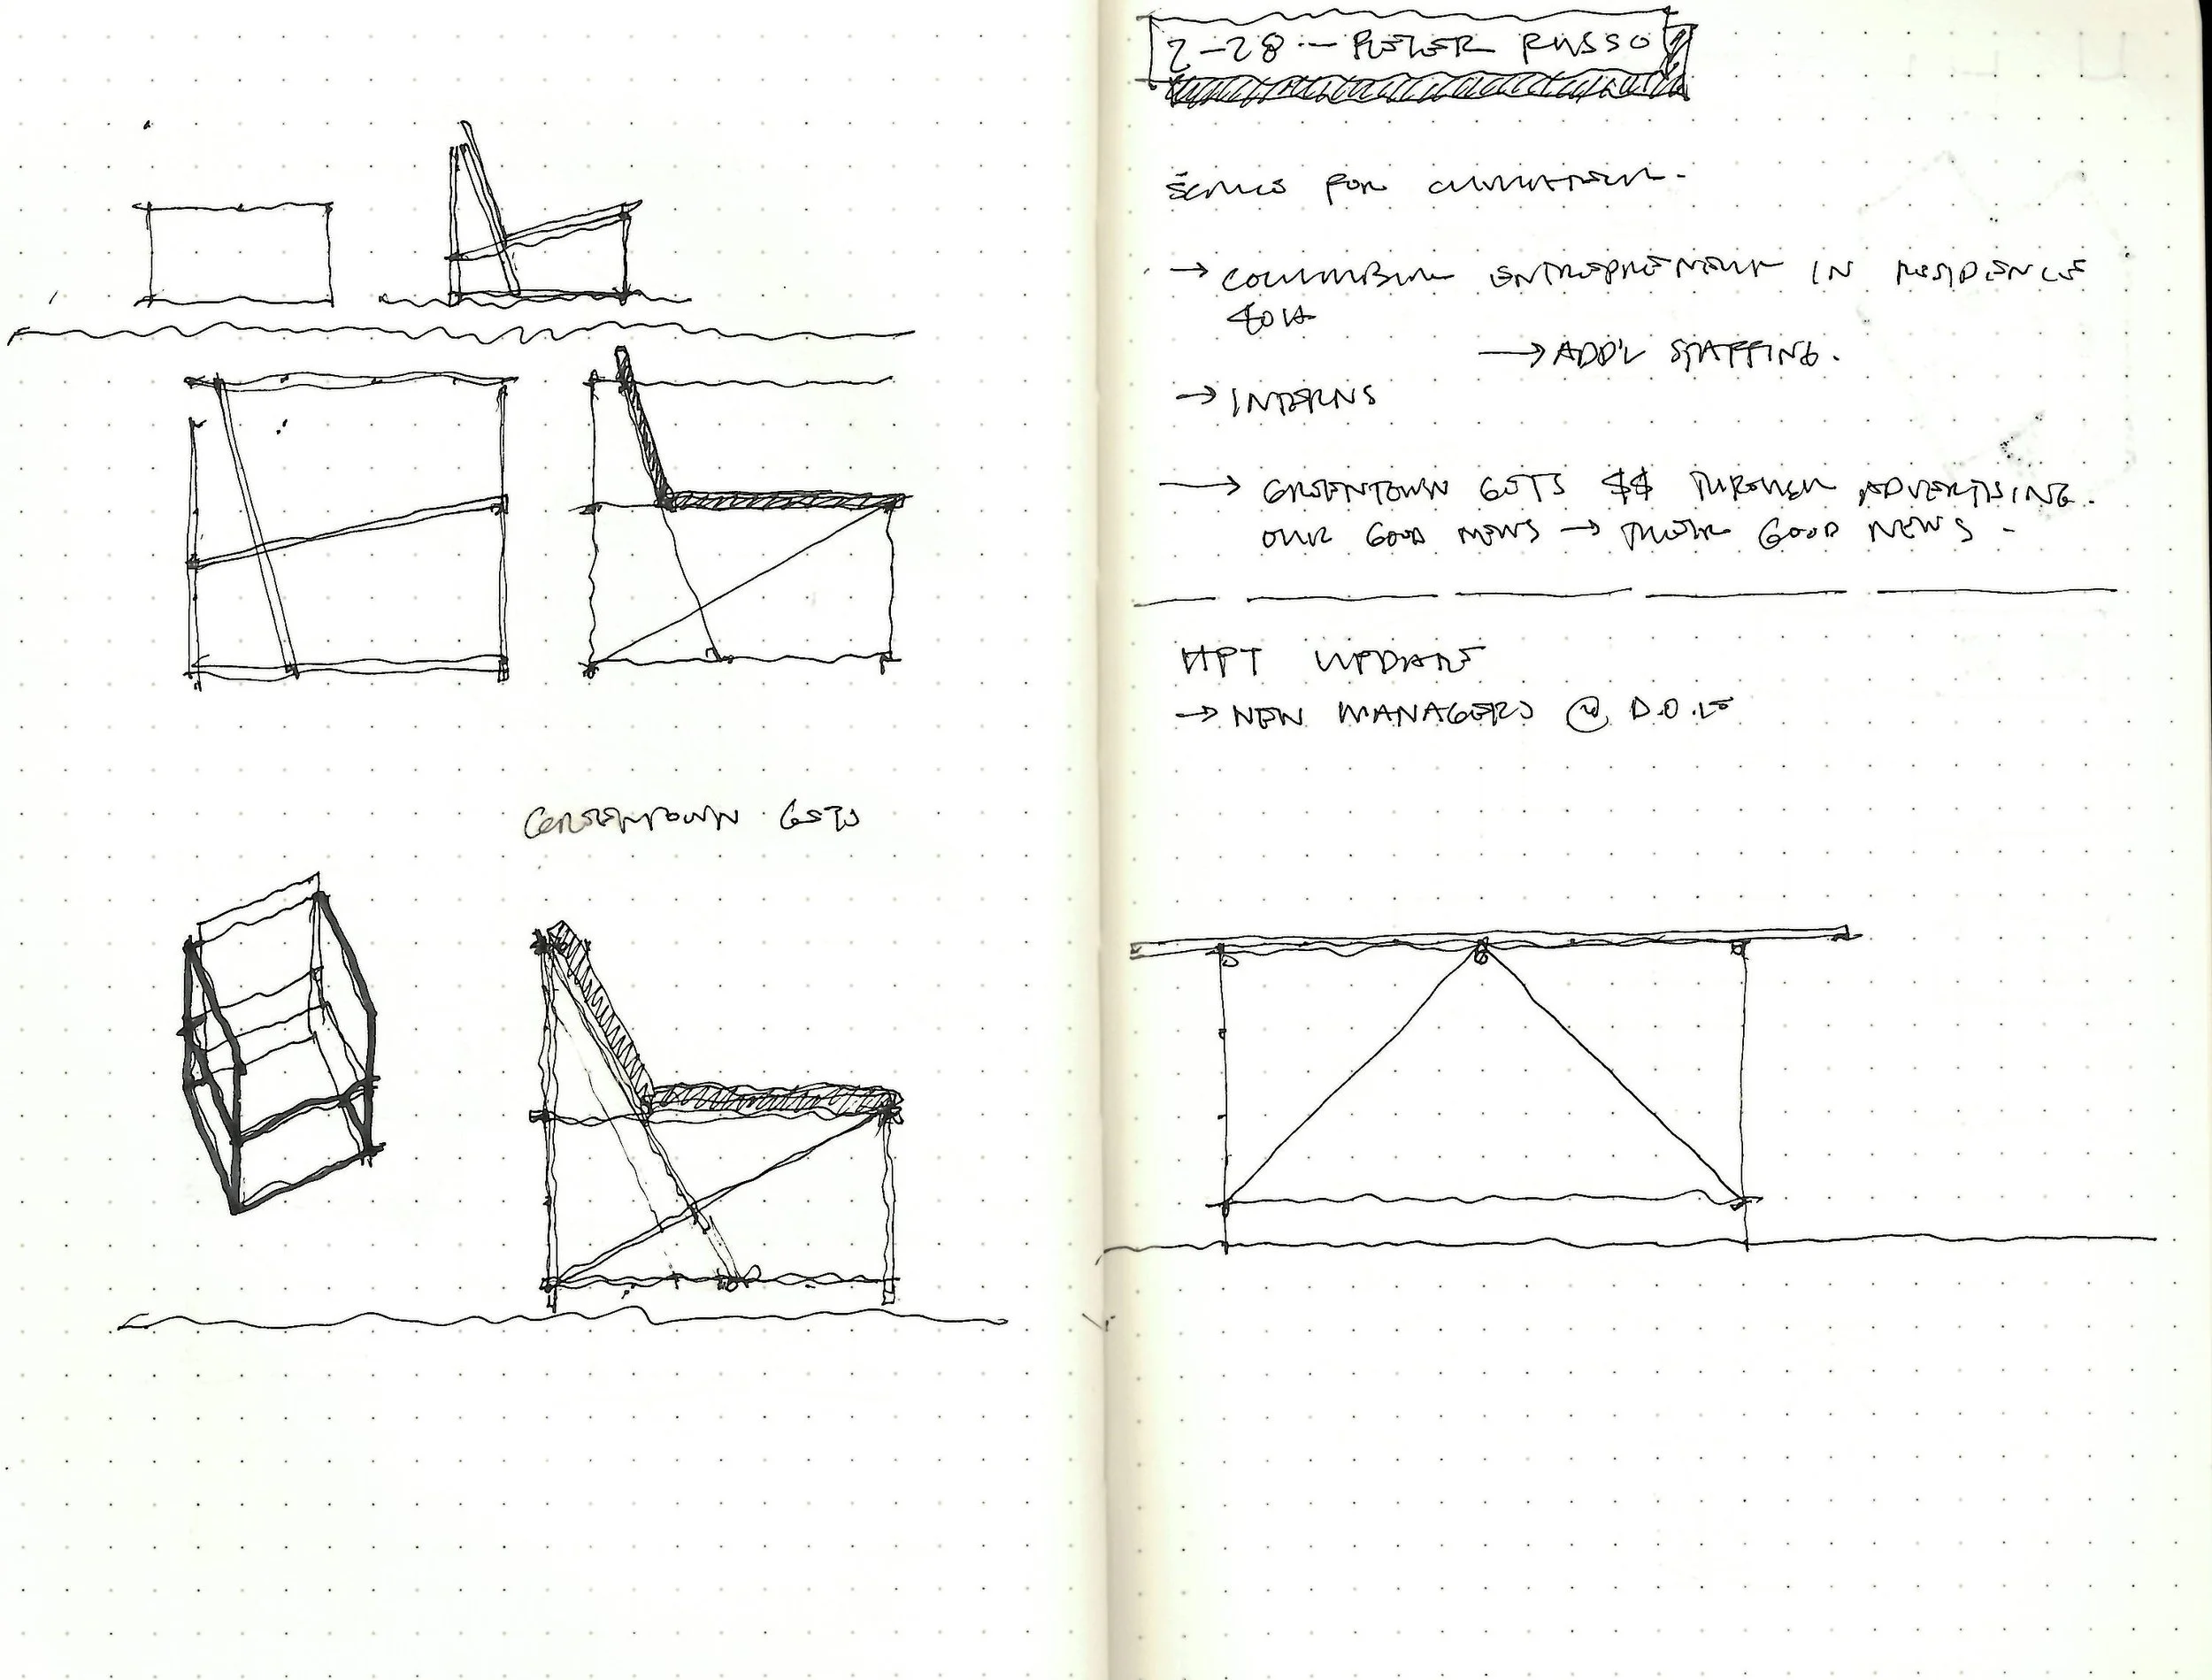 GREENTOWN GETS
2-28 — PETER RUSSO
SERIES FOR
→ COLUMBIA ENTREPRENEUR IN RESIDENCE
40K
→ ADD'L STAFFING.
→ INTERNS
→ GREENTOWN GETS $$ THROUGH ADVERTISING.
OUR GOOD NEWS → THEIR GOOD NEWS -
HPT UPDATE
→ NEW MANAGERS @ D.O.E